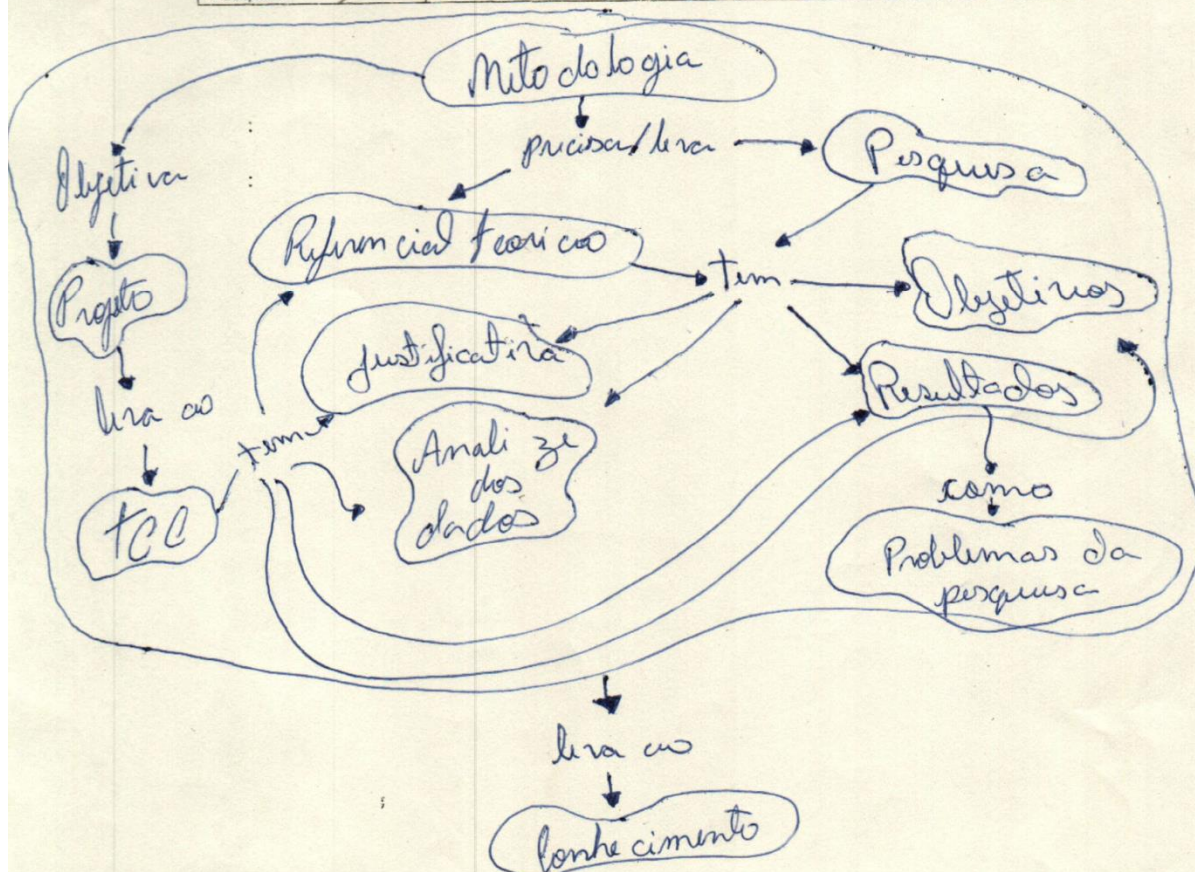 Metodologia
precisa/leva
Pesquisa
Objetiva
Referencial teorico
tem
Objetivos
Projeto
Justificativa
Resultados
leva ao
tem
Analize
dos
dados
como
TCC
Problemas da
pesquisa
leva ao
Conhecimento